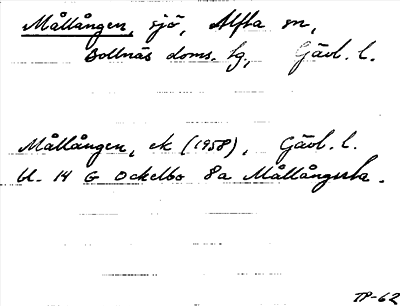 Mållången, sjö, Alfta sn,
Bollnäs doms. hg, Gävl. l.
Mållången, ek (1958), Gävl. l.
bl. 14 G Ockelbo 8a Mållångsta.
TP-62